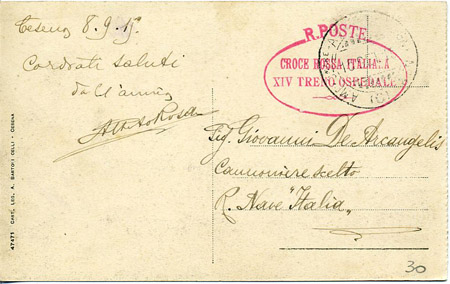 Cesena 8.9.15.
Cordiali saluti
R. POSTE
CROCE ROSSA ITALIANA
XIV TRENO OSPEDALE
Sig. Giovanni De Arcangelis
Cannoniere scelto
R. Nave "Italia"
47471 CART. LEG. A. BARTOLI CELLI - CESENA
30